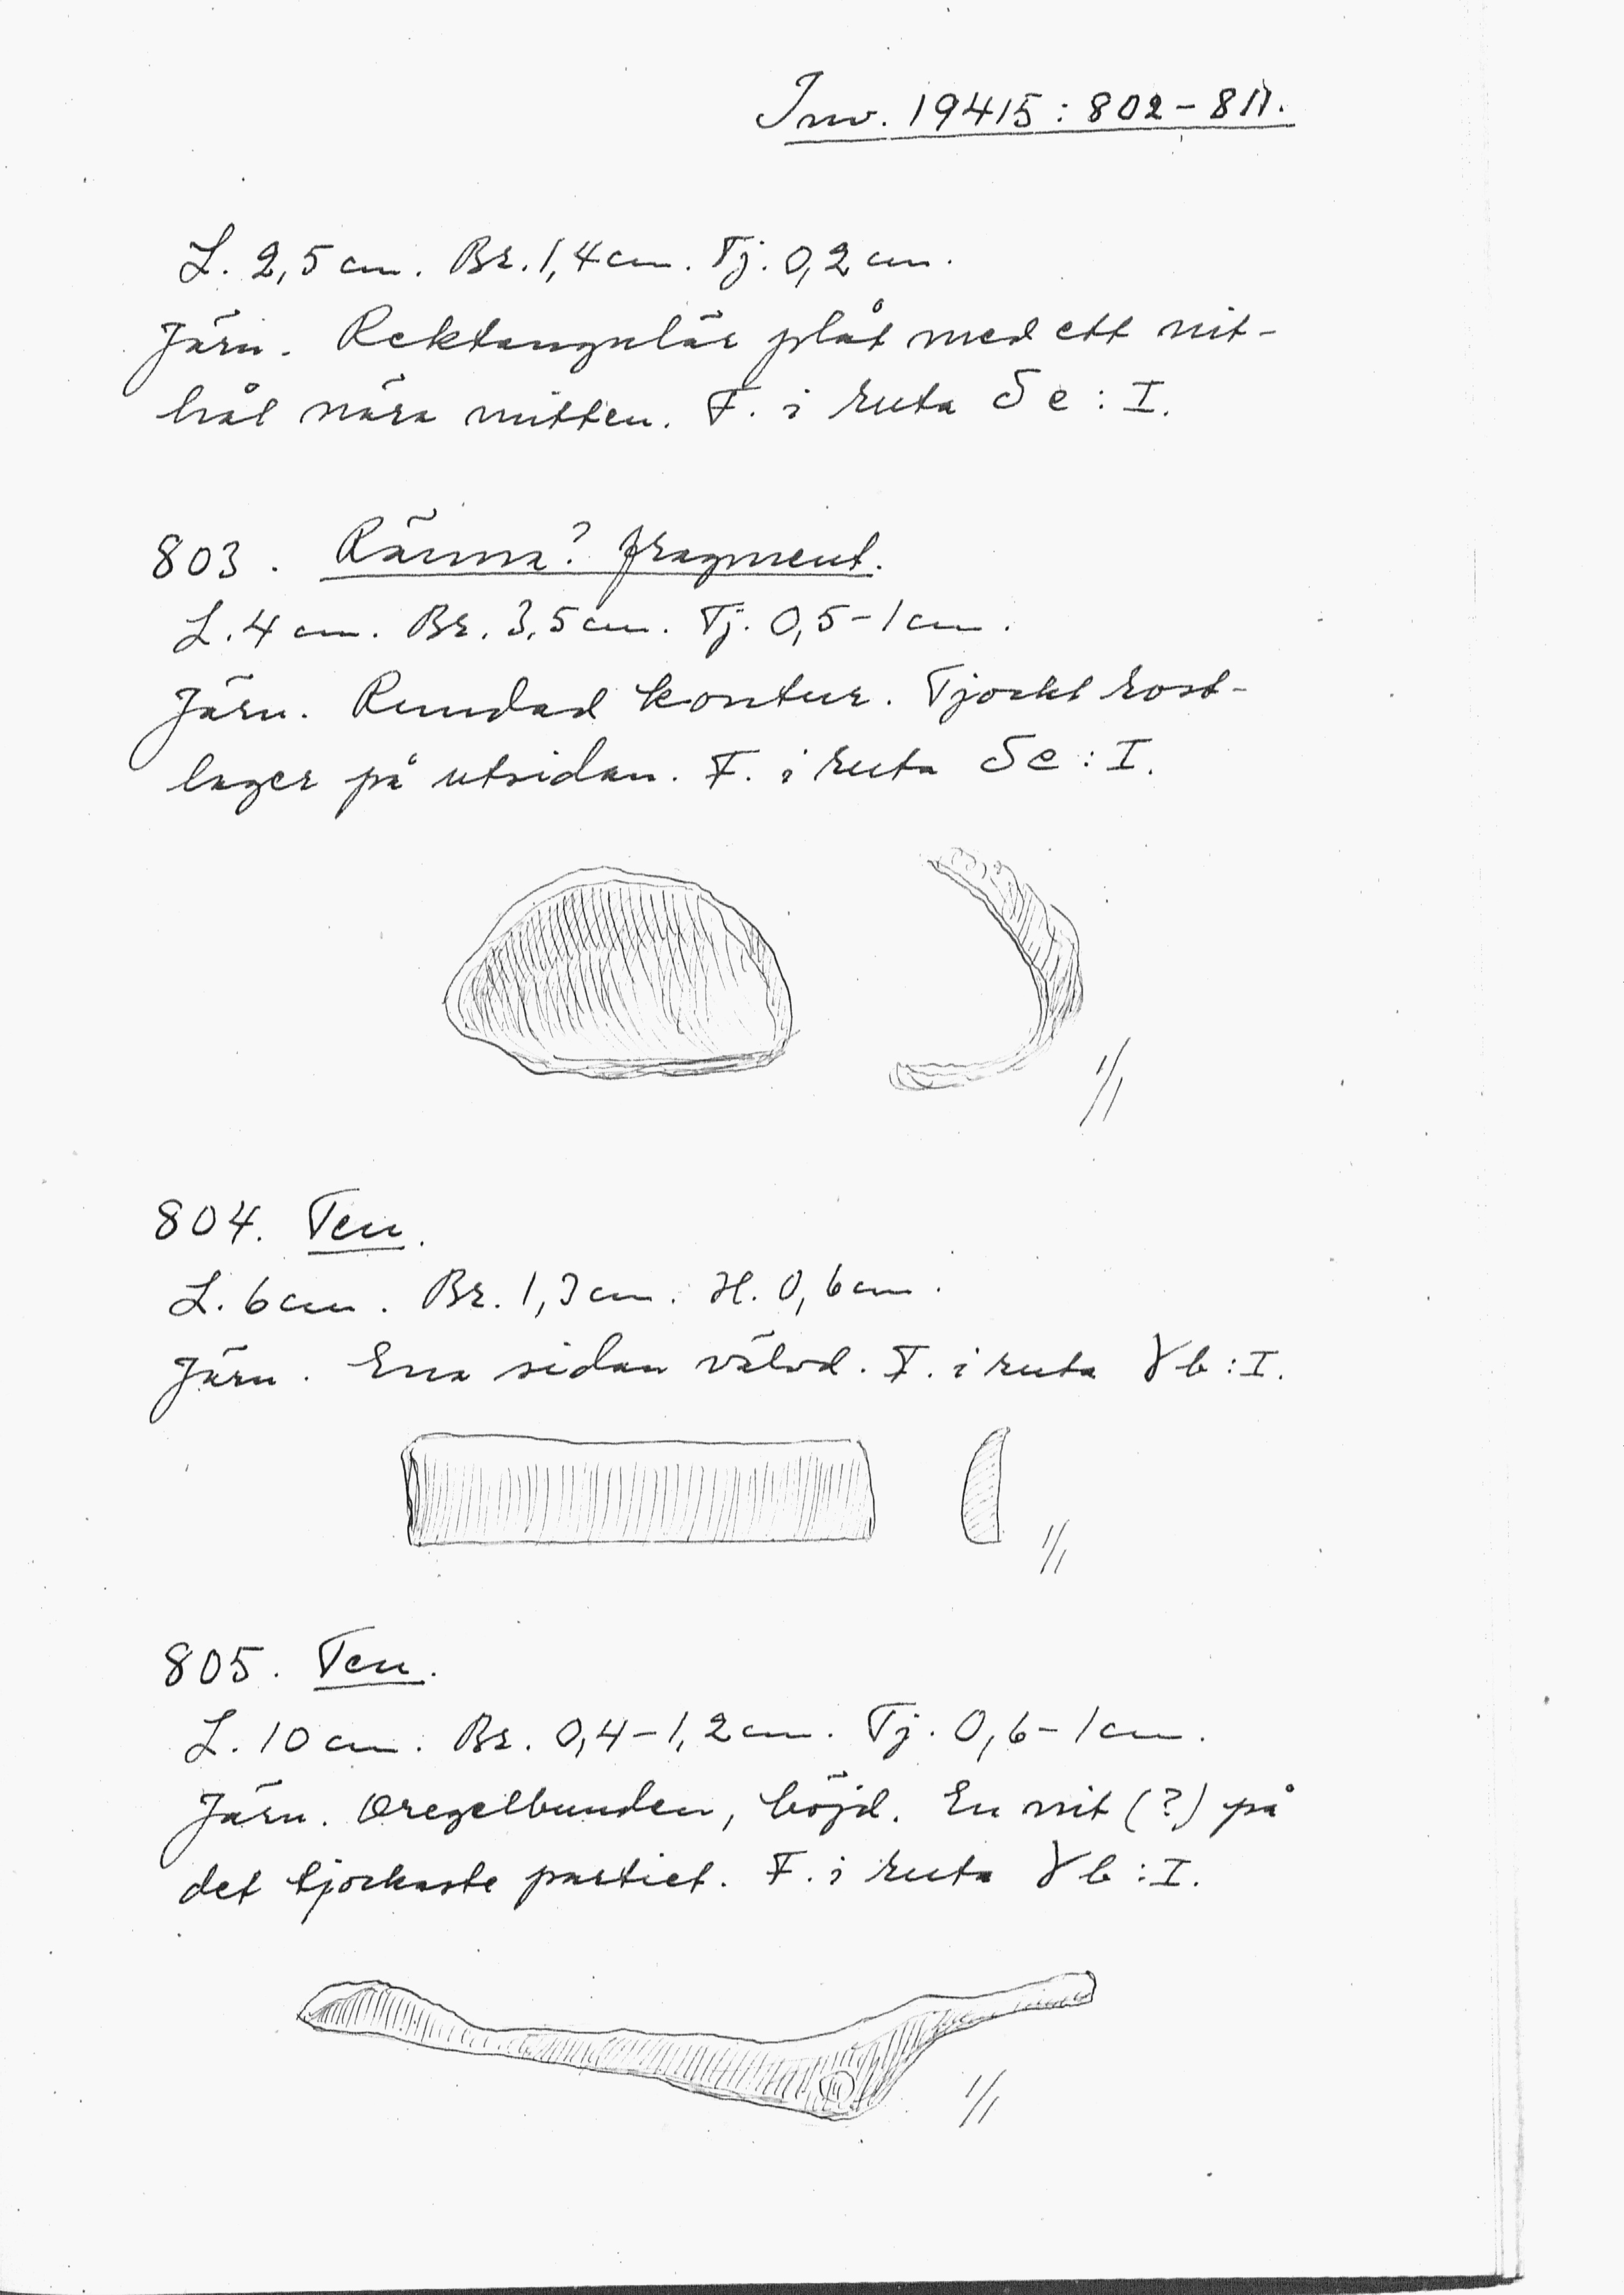 Inv. 19415:802-811.
L. 2,5 cm. Br. 1,4 cm. Tj. 0,2 cm.
Järn. Rektangulär plåt med ett nit-
hål nära mitten. F. i ruta δe:I.
803. Ränna? fragment.
L. 4 cm. Br. 3,5 cm. Tj. 0,5-1 cm.
Järn. Rundad kontur. Tjockt rost-
lager på utsidan. F. i ruta δe:I.
1/1
804. Ten.
L. 6 cm. Br. 1,3 cm. H. 0,6 cm.
Järn. Ena sidan välvd. F. i ruta γb:I.
1/1
805. Ten.
L. 10 cm. Br. 0,4-1,2 cm. Tj. 0,6-1 cm.
Järn. Oregelbunden, böjd. En nit (?) på
det tjockaste partiet. F. i ruta γb:I.
1/1